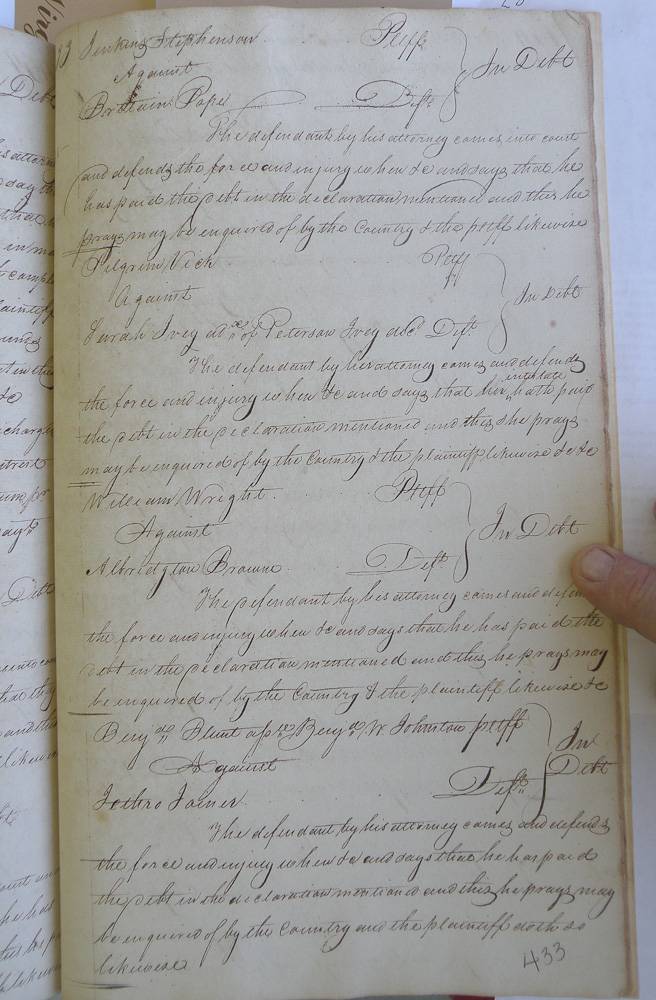 Jenkins Stephenson Pleff
Against In Debt
Brittain Pope Deft
The defendant by his attorney comes into court
and defends the force and injury when &c and says that he
has paid the debt in the declaration mentioned and this he
prays may be enquired of by the Country & the pltff likewise
Pilgrim Vick Pltff
Against In Debt
Sarah Ivey adx of Peterson Ivey decd Deft
The defendant by his attorney comes and defends
the force and injury when &c and says that her intestate hath paid
the debt in the declaration mentioned and this she prays
may be enquired of by the Country & the plaintiff likewise &c &c
William Wright Pleff
Against In Debt
Albridgton Browne Deft
The defendant by his attorney comes and
the force and injury when &c and says that he has paid the
debt in the declaration mentioned and this he prays may
be enquired of by the Country & the plaintiff likewise &c
Benjan Blunt Benjan W Johnston pleff
Against In Debt
Jethro Joiner Deft
The defendant by his attorney comes and defends
the force and injury when &c and says that he has paid
the debt in the declaration mentioned and this he prays may
be enquired of by the Country and the plaintiff doth so
likewise
433